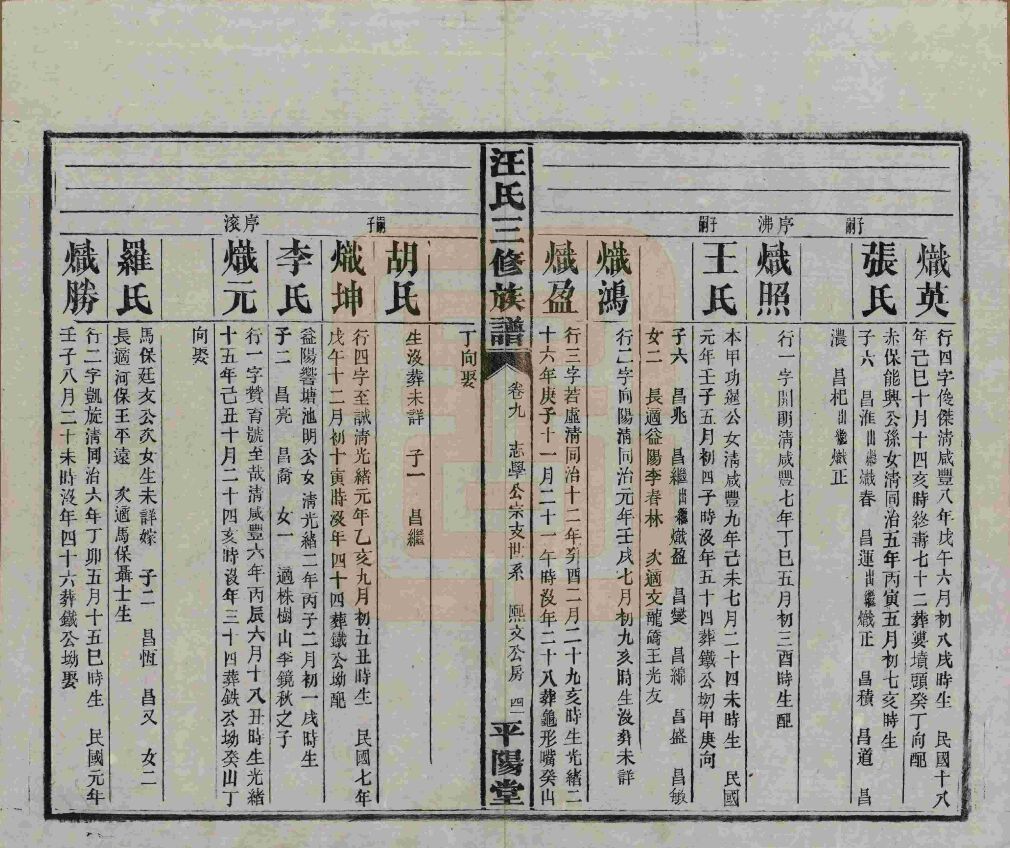 子嗣
熾英
行四字俊傑清咸豐八年戊午六月初八戌時生 民國十八
年己巳十月十四亥時終壽七十二葬婆墳頭癸丁向配
張氏
赤保能興公孫女清同治五年丙寅五月初七亥時生
子六 昌淮出繼熾春 昌運出繼熾正 昌積 昌道 昌
濃 昌杞出繼熾正
序沸
熾照
行一字開朗清咸豐七年丁巳五月初三酉時生配
子嗣
王氏
本甲功選公女清咸豐九年己未七月二十四未時生 民國
元年壬子五月初四子時沒年五十四葬鐵公坳甲庚向
子六 昌兆 昌繼出繼熾盈 昌燮 昌綿 昌盛 昌敏
女二 長適益陽李春林 次適文龍碕王光友
熾鴻
行二字同陽清同治元年壬戌七月初九亥時生沒葬未詳
熾盈
行三字若虛清同治十二年癸酉二月二十九亥時生光緒二
十六年庚子十一月二十一午時沒年二十八葬龜形嘴癸山
汪氏三修族譜
卷九 志學公宗支世系 熙文公房 四二
平陽堂
丁向娶
嗣子
胡氏
生沒葬未詳 子一 昌繼
熾坤
行四字至誠清光緒元年乙亥九月初五丑時生 民國七年
戊午十二月初十寅時沒年四十四葬鐵公坳配
李氏
益陽響塘池明公女清光緒二年丙子二月初一戌時生
子二 昌亮 昌喬 女一 適株樹山李鏡秋之子
序滚
熾元
行一字贊育號至哉清咸豐六年丙辰六月十八丑時生光緒
十五年己丑十月二十四亥時沒年三十四葬鉄公坳癸山丁
向娶
羅氏
馬保廷友公次女生未詳嫁 子二 昌恆 昌又 女二
長適河保王平遠 次適馬保聶士生
熾勝
行二字凱旋清同治六年丁卯五月十五巳時生 民國元年
壬子八月二十未時沒年四十六葬鐵公坳娶